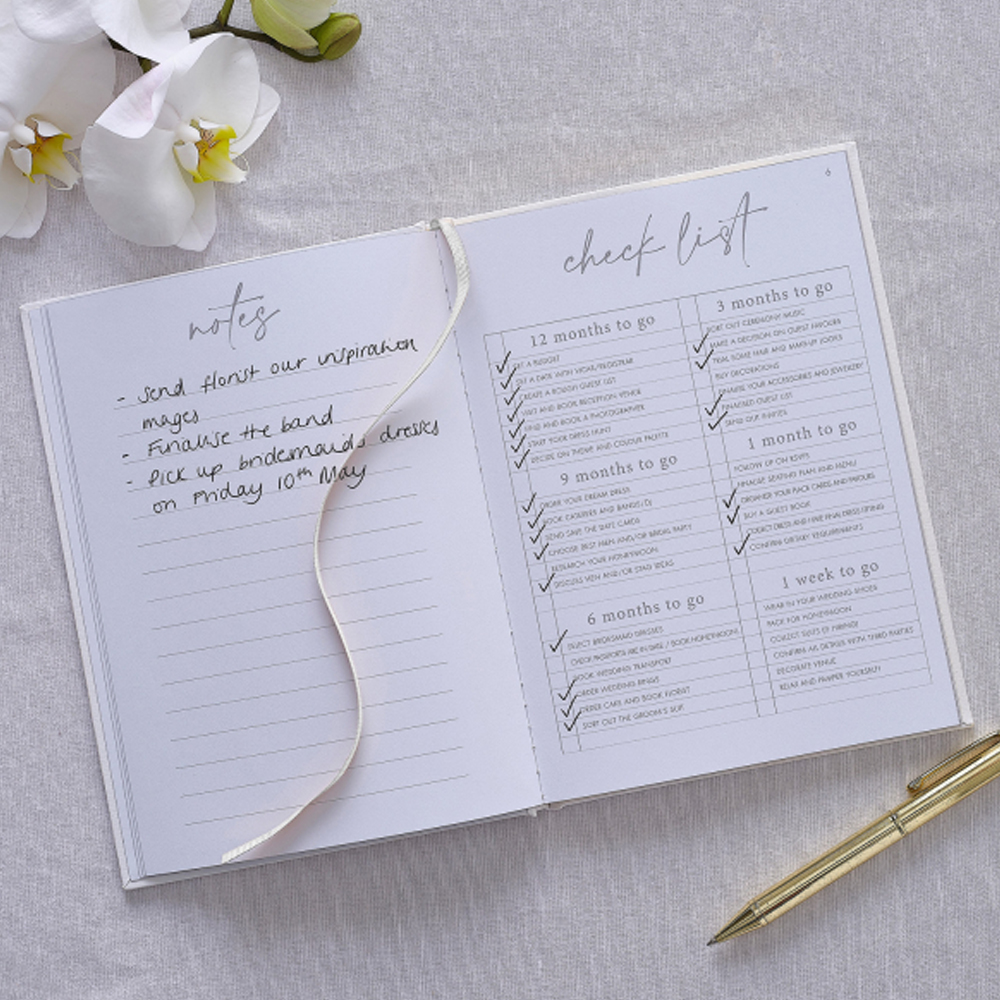 notes
- Send florist our inspiration
mages
- Finalise the band
- Pick up bridesmaids dresses
on Friday 10th May
6
check list
12 months to go
SET A BUDGET
SET A DATE WITH VICAR/REGISTRAR
CREATE A ROUGH GUEST LIST
VISIT AND BOOK RECEPTION VENUE
FIND AND BOOK A PHOTOGRAPHER
START YOUR DRESS HUNT
DECIDE ON THEME AND COLOUR PALETTE
9 months to go
ORDER YOUR DREAM DRESS
BOOK CATERERS AND BANDS/DJ
SEND SAVE THE DATE CARDS
CHOOSE BEST MEN AND/OR BRIDAL PARTY
RESEARCH YOUR HONEYMOON
DISCUSS HEN AND/OR STAG IDEAS
6 months to go
SELECT BRIDESMAID DRESSES
CHECK PASSPORTS ARE IN DATE / BOOK HONEYMOON
BOOK WEDDING TRANSPORT
ORDER WEDDING RINGS
ORDER CAKE AND BOOK FLORIST
SORT OUT THE GROOM'S SUIT
3 months to go
SORT OUT CEREMONY MUSIC
MAKE A DECISION ON GUEST FAVOURS
TRIAL SOME HAIR AND MAKE-UP LOOKS
BUY DECORATIONS
FINALISE YOUR ACCESSORIES AND JEWELLERY
FINALISED GUEST LIST
SEND OUT INVITES
1 month to go
FOLLOW UP ON RSVPS
FINALISE SEATING PLAN AND MENU
ORGANISE YOUR PLACE CARDS AND FAVOURS
BUY A GUEST BOOK
COLLECT DRESS AND HAVE FINAL DRESS FITTING
CONFIRM DIETARY REQUIREMENTS
1 week to go
WEAR IN YOUR WEDDING SHOES
PACK FOR HONEYMOON
COLLECT SUITS (IF HIRING)
CONFIRM ALL DETAILS WITH THIRD PARTIES
DECORATE VENUE
RELAX AND PAMPER YOURSELF!